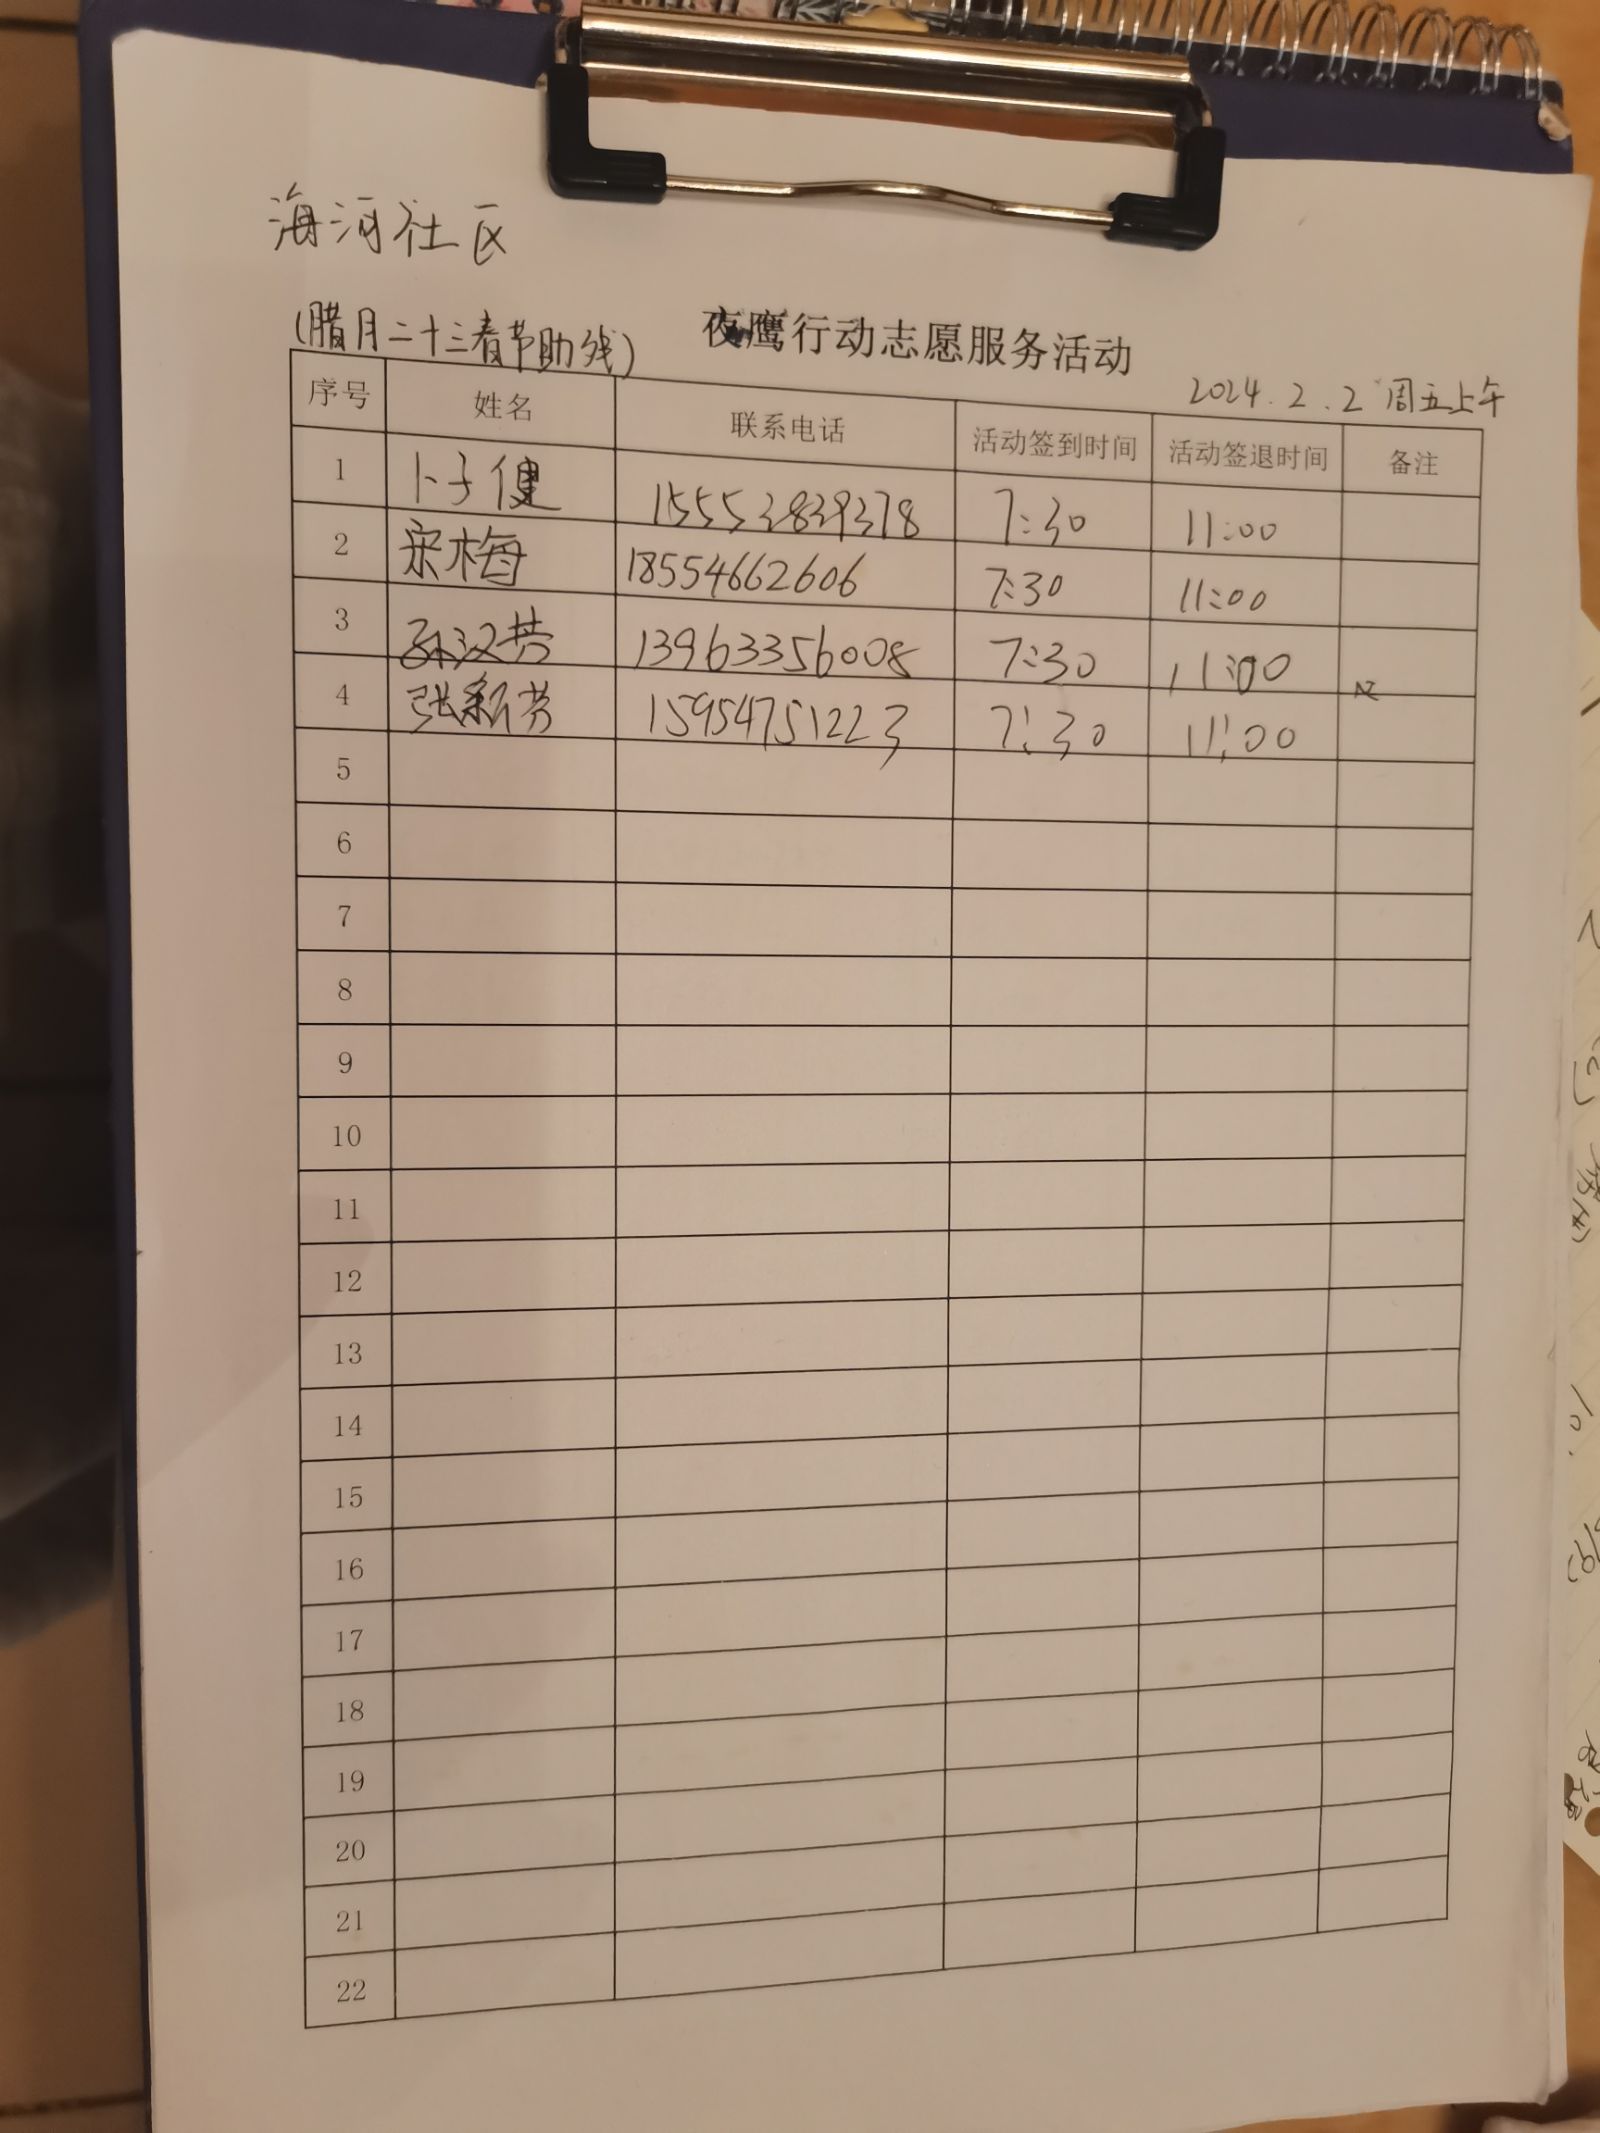 海河社区
(腊月二十三春节助残)
夜鹰行动志愿服务活动
2024.2.2 周五上午
序号 姓名 联系电话 活动签到时间 活动签退时间 备注
1 卜子健 15553839378 7:30 11:00
2 宋梅 18554662606 7:30 11:00
3 孙汉 13963356008 7:30 11:00
4 张新芳 15954751223 7:30 11:00
5
6
7
8
9
10
11
12
13
14
15
16
17
18
19
20
21
22